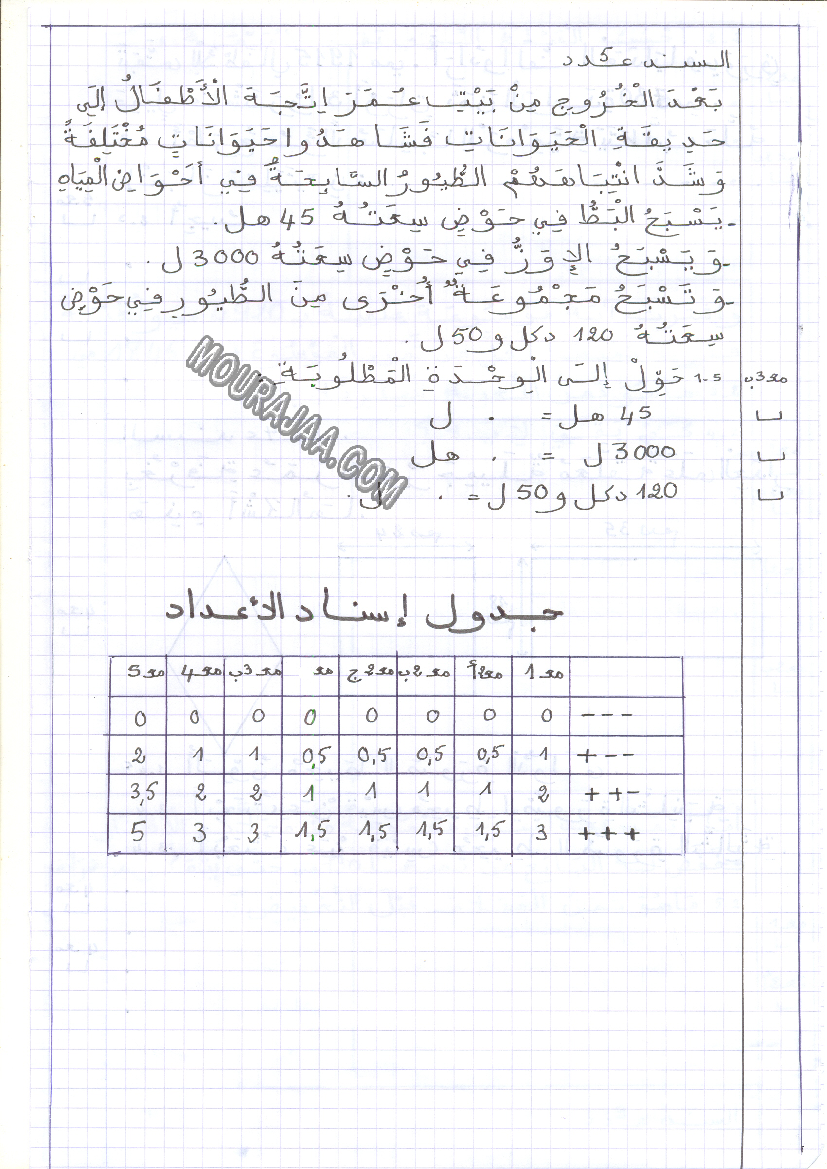 السند عـ5ـدد
بَعْدَ الْخُرُوجِ مِنْ بَيْتِ عُمَرَ اِتَّجَهَ الْأَطْفَالُ إِلَى
حَدِيقَةِ الْحَيَوَانَاتِ فَشَاهَدُوا حَيَوَانَاتٍ مُخْتَلِفَةً
وَشَدَّ انْتِبَاهَهُمْ الطُّيُورُ السَّابِحَةُ فِي أَحْوَاضِ الْمِيَاهِ
- يَسْبَحُ الْبَطُّ فِي حَوْضٍ سِعَتُهُ 45 هل.
- وَيَسْبَحُ الإِوَزُّ فِي حَوْضٍ سِعَتُهُ 3000 ل.
- وَتَسْبَحُ مَجْمُوعَةٌ أُخْرَى مِنَ الطُّيُورِ فِي حَوْضٍ
سِعَتُهُ 120 دكل و 50 ل.
مع3ب 1-5 حَوِّلْ إِلَى الْوِحْدَةِ الْمَطْلُوبَةِ.
45 هل = . ل
3000 ل = . هل
120 دكل و 50 ل = . ل.
MOURAJAA.COM
جدول إسناد الأعداد
مع1 مع2أ مع2ب مع2ج مع مع3ب مع4 مع5
--- 0 0 0 0 0 0 0 0
+-- 1 0,5 0,5 0,5 0,5 1 1 2
++- 2 1 1 1 1 2 2 3,5
+++ 3 1,5 1,5 1,5 1,5 3 3 5